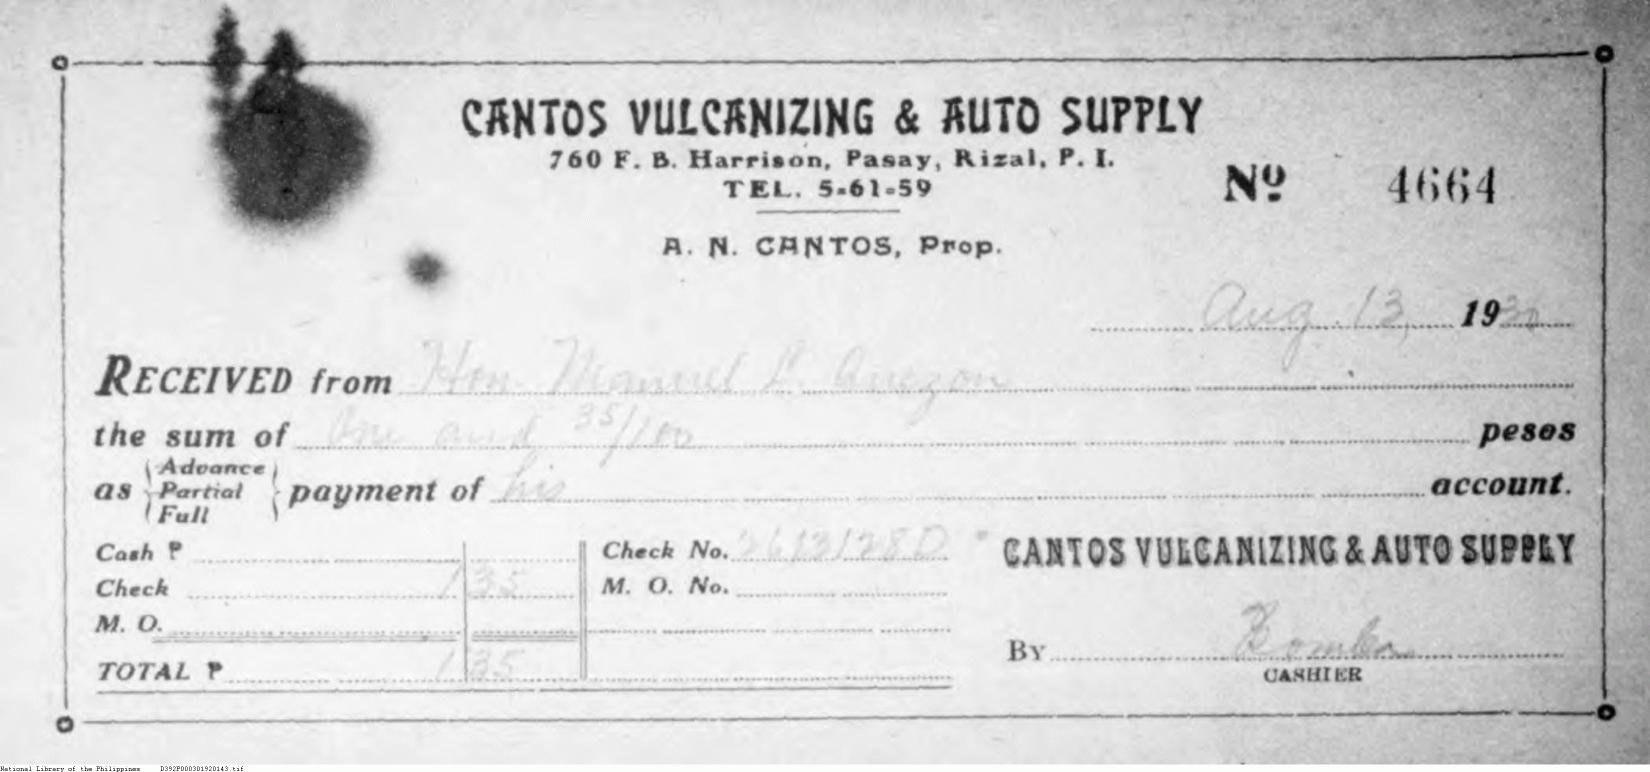 CANTOS VULCANIZING & AUTO SUPPLY
760 F. B. Harrison, Pasay, Rizal, P. I.
TEL. 5-61-59
Nº 4664
A. N. CANTOS, Prop.
Aug. 13, 19
RECEIVED from Hon. Manuel L. Quezon
the sum of One and 35/100 pesos
as { Advance Partial Full } payment of his account.
Cash ₱
Check 1 35
M. O.
TOTAL ₱ 1 35
Check No. 2613128D
M. O. No.
CANTOS VULCANIZING & AUTO SUPPLY
By
CASHIER
National Library of the Philippines D392P000301920143.tif